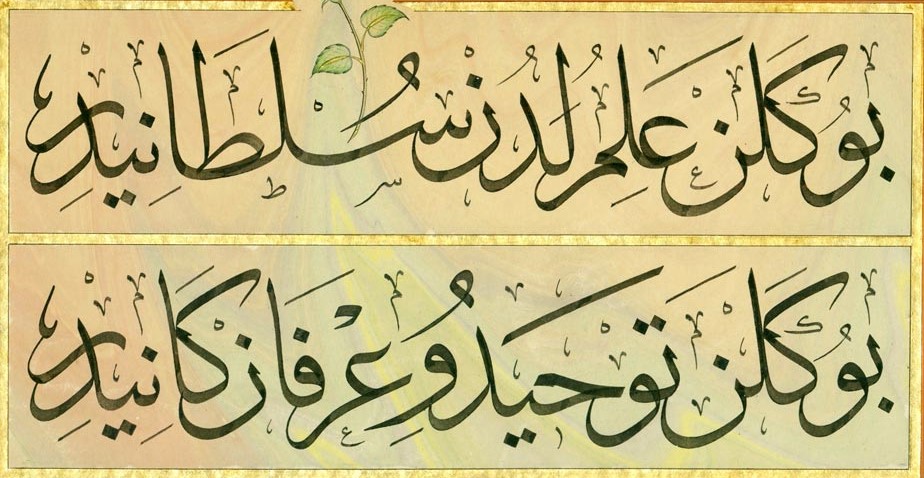 بو كلن علم لدن سلطانیدر
بو كلن توحید و عرفان كانیدر